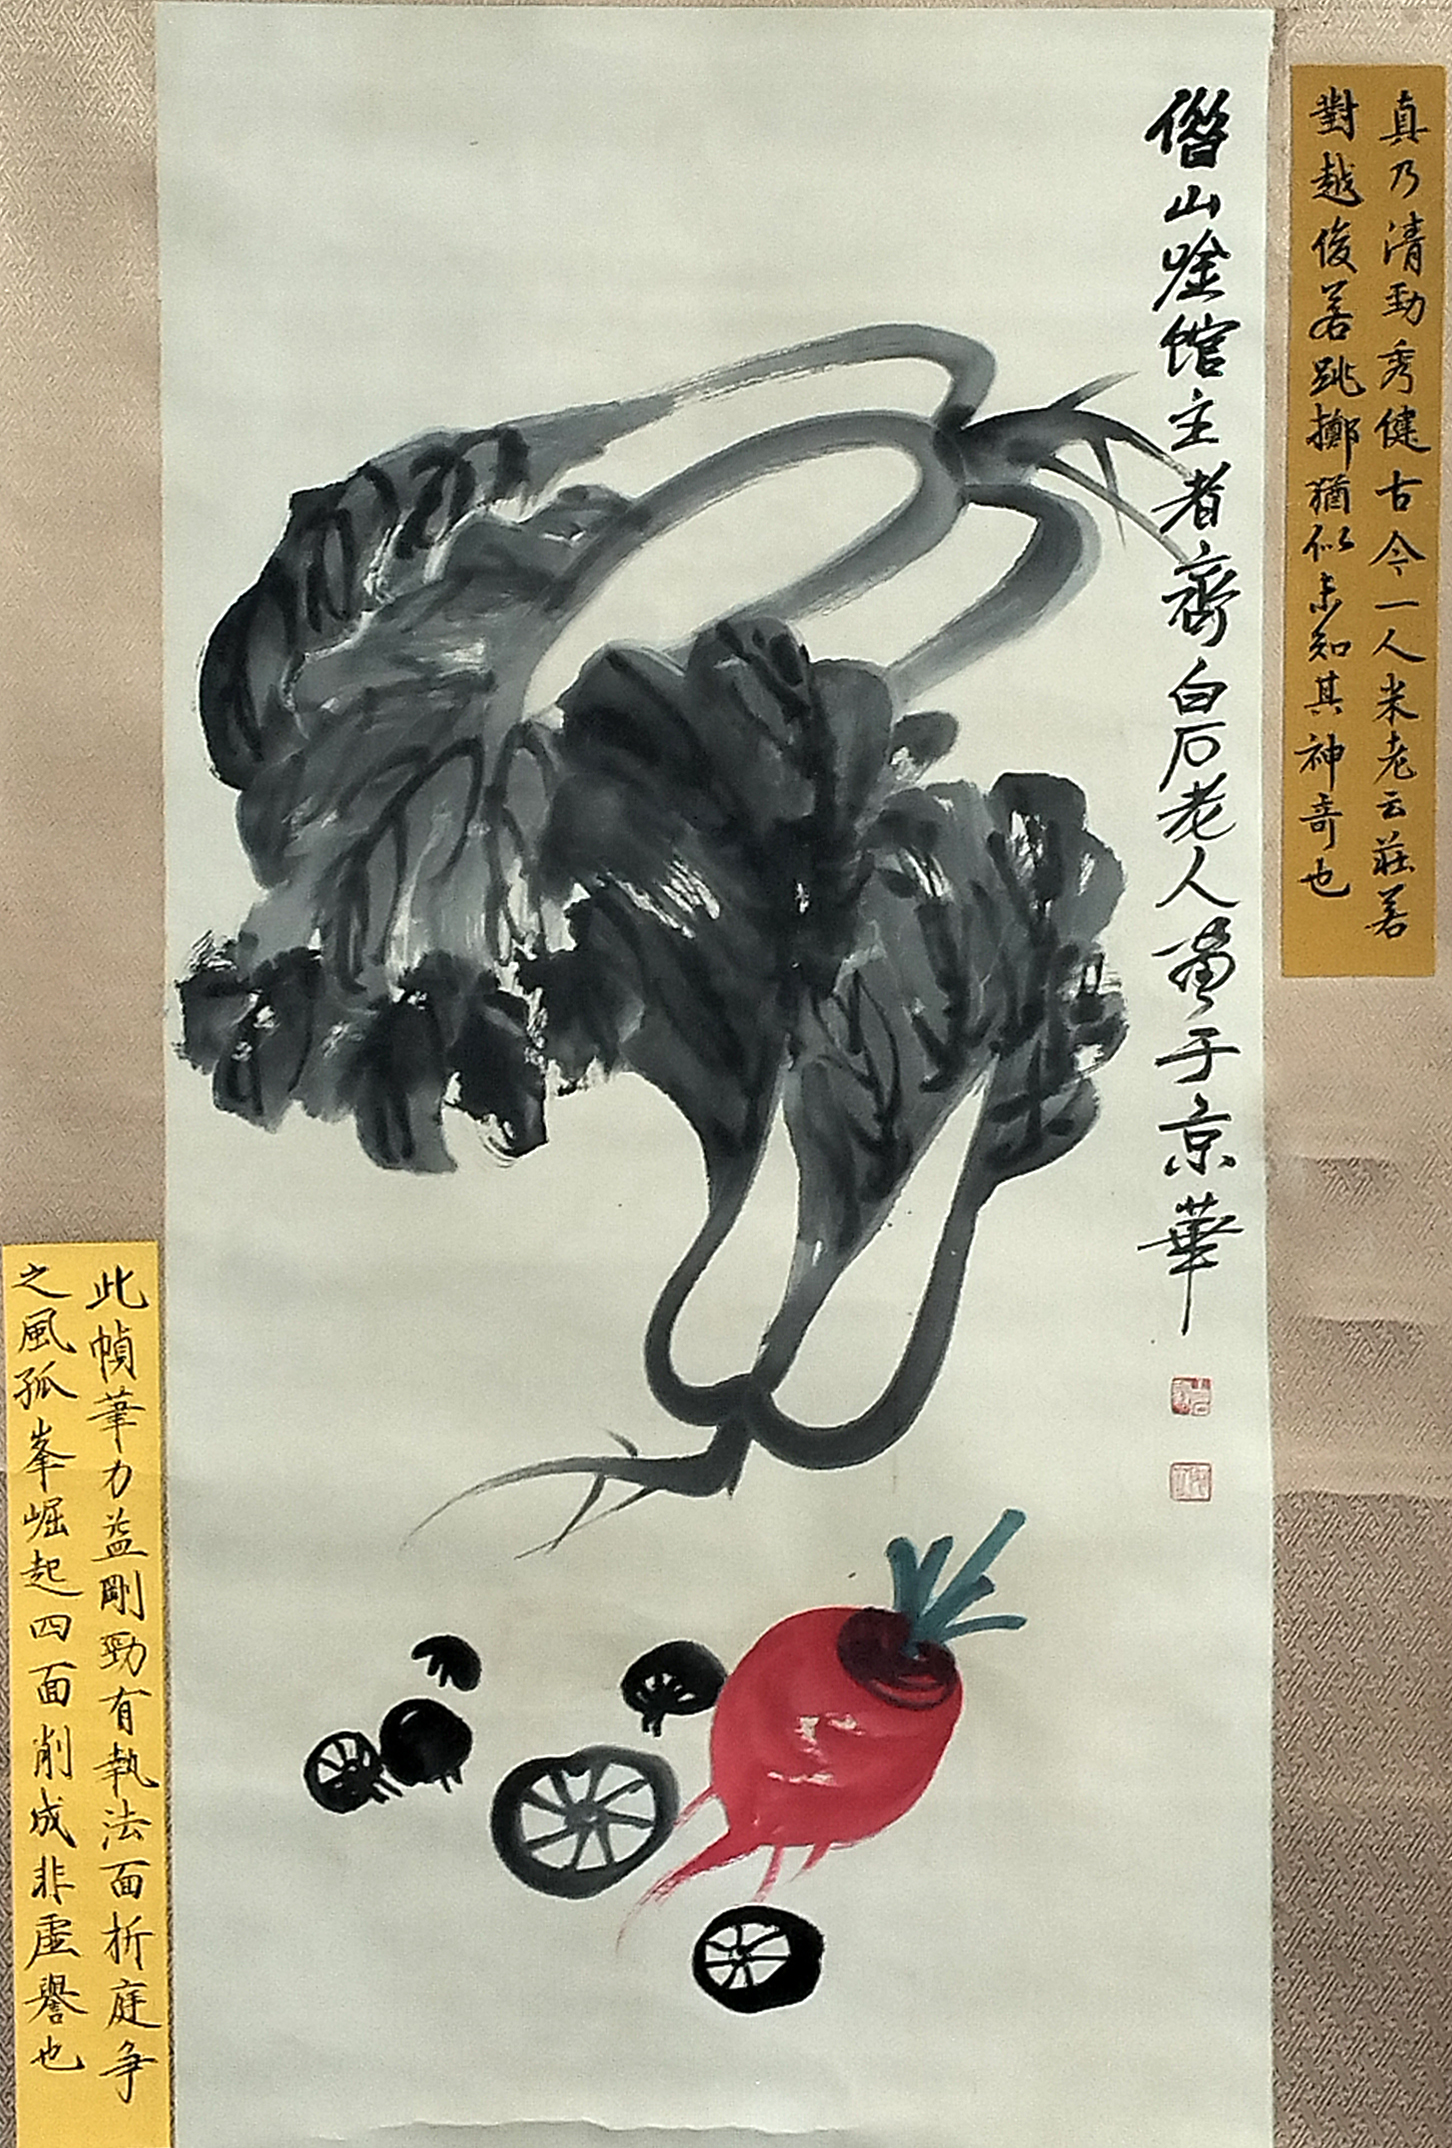 真乃清勁秀健古今一人米老云莊若
對越俊若跳擲猶似未知其神奇也
借山唫馆主者齊白石老人畫于京華
此幀筆力益剛勁有執法面折庭争
之風孤峯崛起四面削成非虛譽也